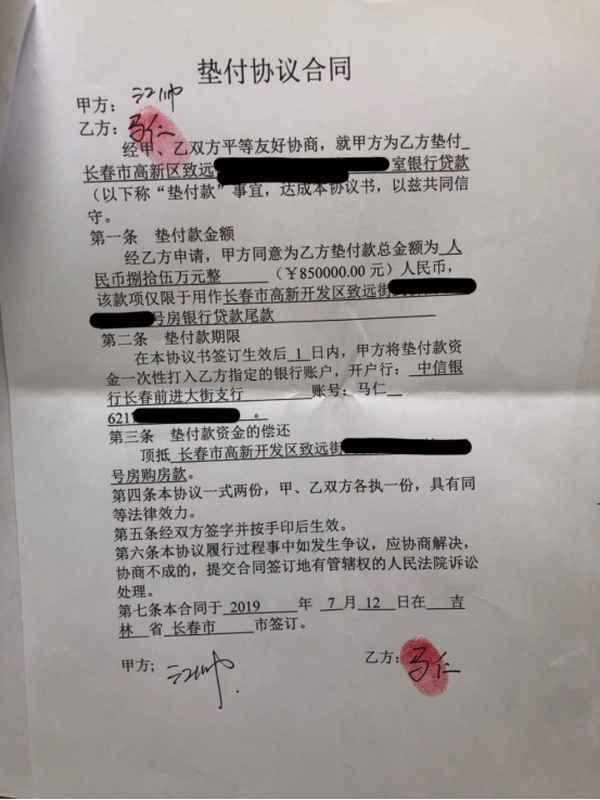 垫付协议合同
甲方：江帅
乙方：马仁
经甲、乙双方平等友好协商，就甲方为乙方垫付
长春市高新区致远 室银行贷款
（以下称“垫付款”事宜，达成本协议书，以兹共同信
守。
第一条 垫付款金额
经乙方申请，甲方同意为乙方垫付款总金额为 人
民币捌拾伍万元整 （￥850000.00 元）人民币，
该款项仅限于用作长春市高新开发区致远街
号房银行贷款尾款
第二条 垫付款期限
在本协议书签订生效后 1 日内，甲方将垫付款资
金一次性打入乙方指定的银行账户，开户行： 中信银
行长春前进大街支行 账号：马仁
621 。
第三条 垫付款资金的偿还
顶抵 长春市高新开发区致远街
号房购房款。
第四条本协议一式两份，甲、乙双方各执一份，具有同
等法律效力。
第五条经双方签字并按手印后生效。
第六条本协议履行过程事中如发生争议，应协商解决，
协商不成的，提交合同签订地有管辖权的人民法院诉讼
处理。
第七条本合同于 2019 年 7 月 12 日在 吉
林 省 长春市 市签订。
甲方; 江帅 乙方: 马仁